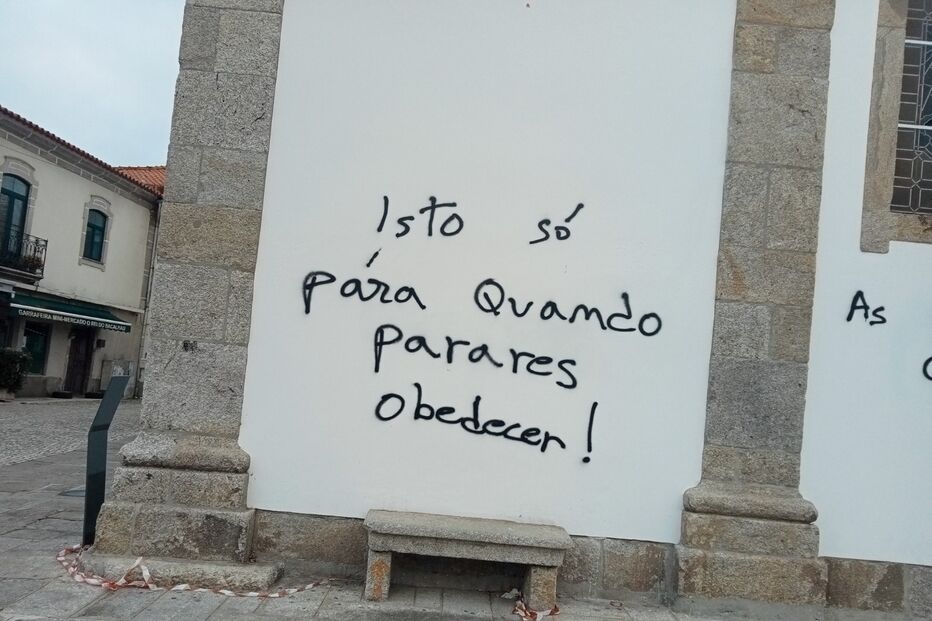 Isto só
pára Quando
Parares
Obedecer!
As
GARRAFEIRA MINI-MERCADO O REI DO BACALHAU